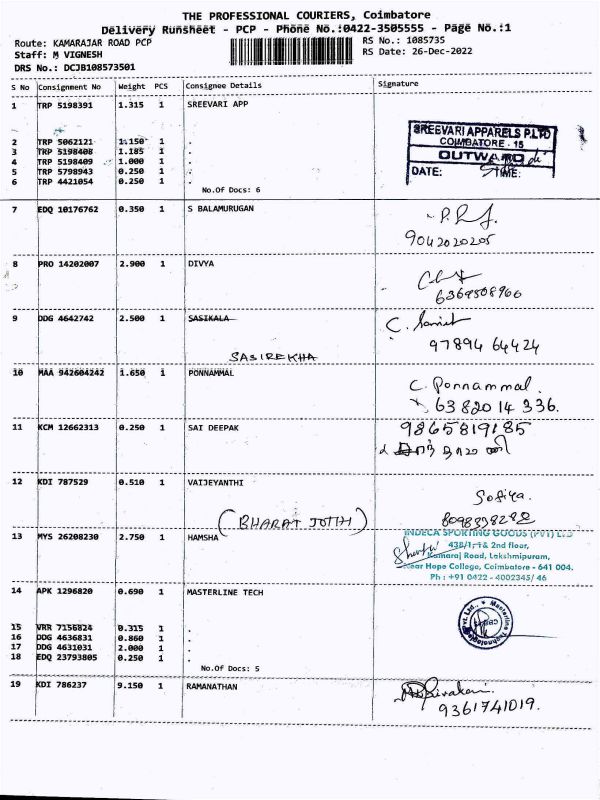 THE PROFESSIONAL COURIERS, Coimbatore
Delivery Runsheet - PCP - Phone No.:0422-3505555 - Page No.:1
Route: KAMARAJAR ROAD PCP
RS No.: 1085735
Staff: M VIGNESH
RS Date: 26-Dec-2022
DRS No.: DCJB108573501
S No Consignment No Weight PCS Consignee Details Signature
1 TRP 5198391 1.315 1 SREEVARI APP
2 TRP 5062121 1.150 1 .
3 TRP 5198408 1.185 1 .
4 TRP 5198409 1.000 1 .
5 TRP 5798943 0.250 1 .
6 TRP 4421054 0.250 1 .
No.Of Docs: 6
SREEVARI APPARELS P.LTD
COIMBATORE - 15
OUTWARD
DATE: TIME:
7 EDQ 10176762 0.350 1 S BALAMURUGAN
9042020205
8 PRO 14202007 2.900 1 DIVYA
6369508966
9 DDG 4642742 2.500 1 SASIKALA
SASIREKHA
97894 64424
10 MAA 942604242 1.650 1 PONNAMMAL
C. Ponnammal.
63820 14 336.
11 KCM 12662313 0.250 1 SAI DEEPAK
9865819185
12 KDI 787529 0.510 1 VAIJEYANTHI
(BHARAT JOTHI)
Sofiya.
13 MYS 26208230 2.750 1 HAMSHA
INDECA SPORTING GOODS (PVT) LTD
438/1,1& 2nd floor,
Kamaraj Road, Lakshmipuram,
Near Hope College, Coimbatore - 641 004.
Ph : +91 0422 - 4002345/ 46
14 APK 1296820 0.690 1 MASTERLINE TECH
15 VRR 7156824 0.315 1 .
16 DDG 4636831 0.860 1 .
17 DDG 4631031 2.000 1 .
18 EDQ 23793805 0.250 1 .
No.Of Docs: 5
Masterline Technologies Pvt Ltd.,
19 KDI 786237 9.150 1 RAMANATHAN
9361741019.